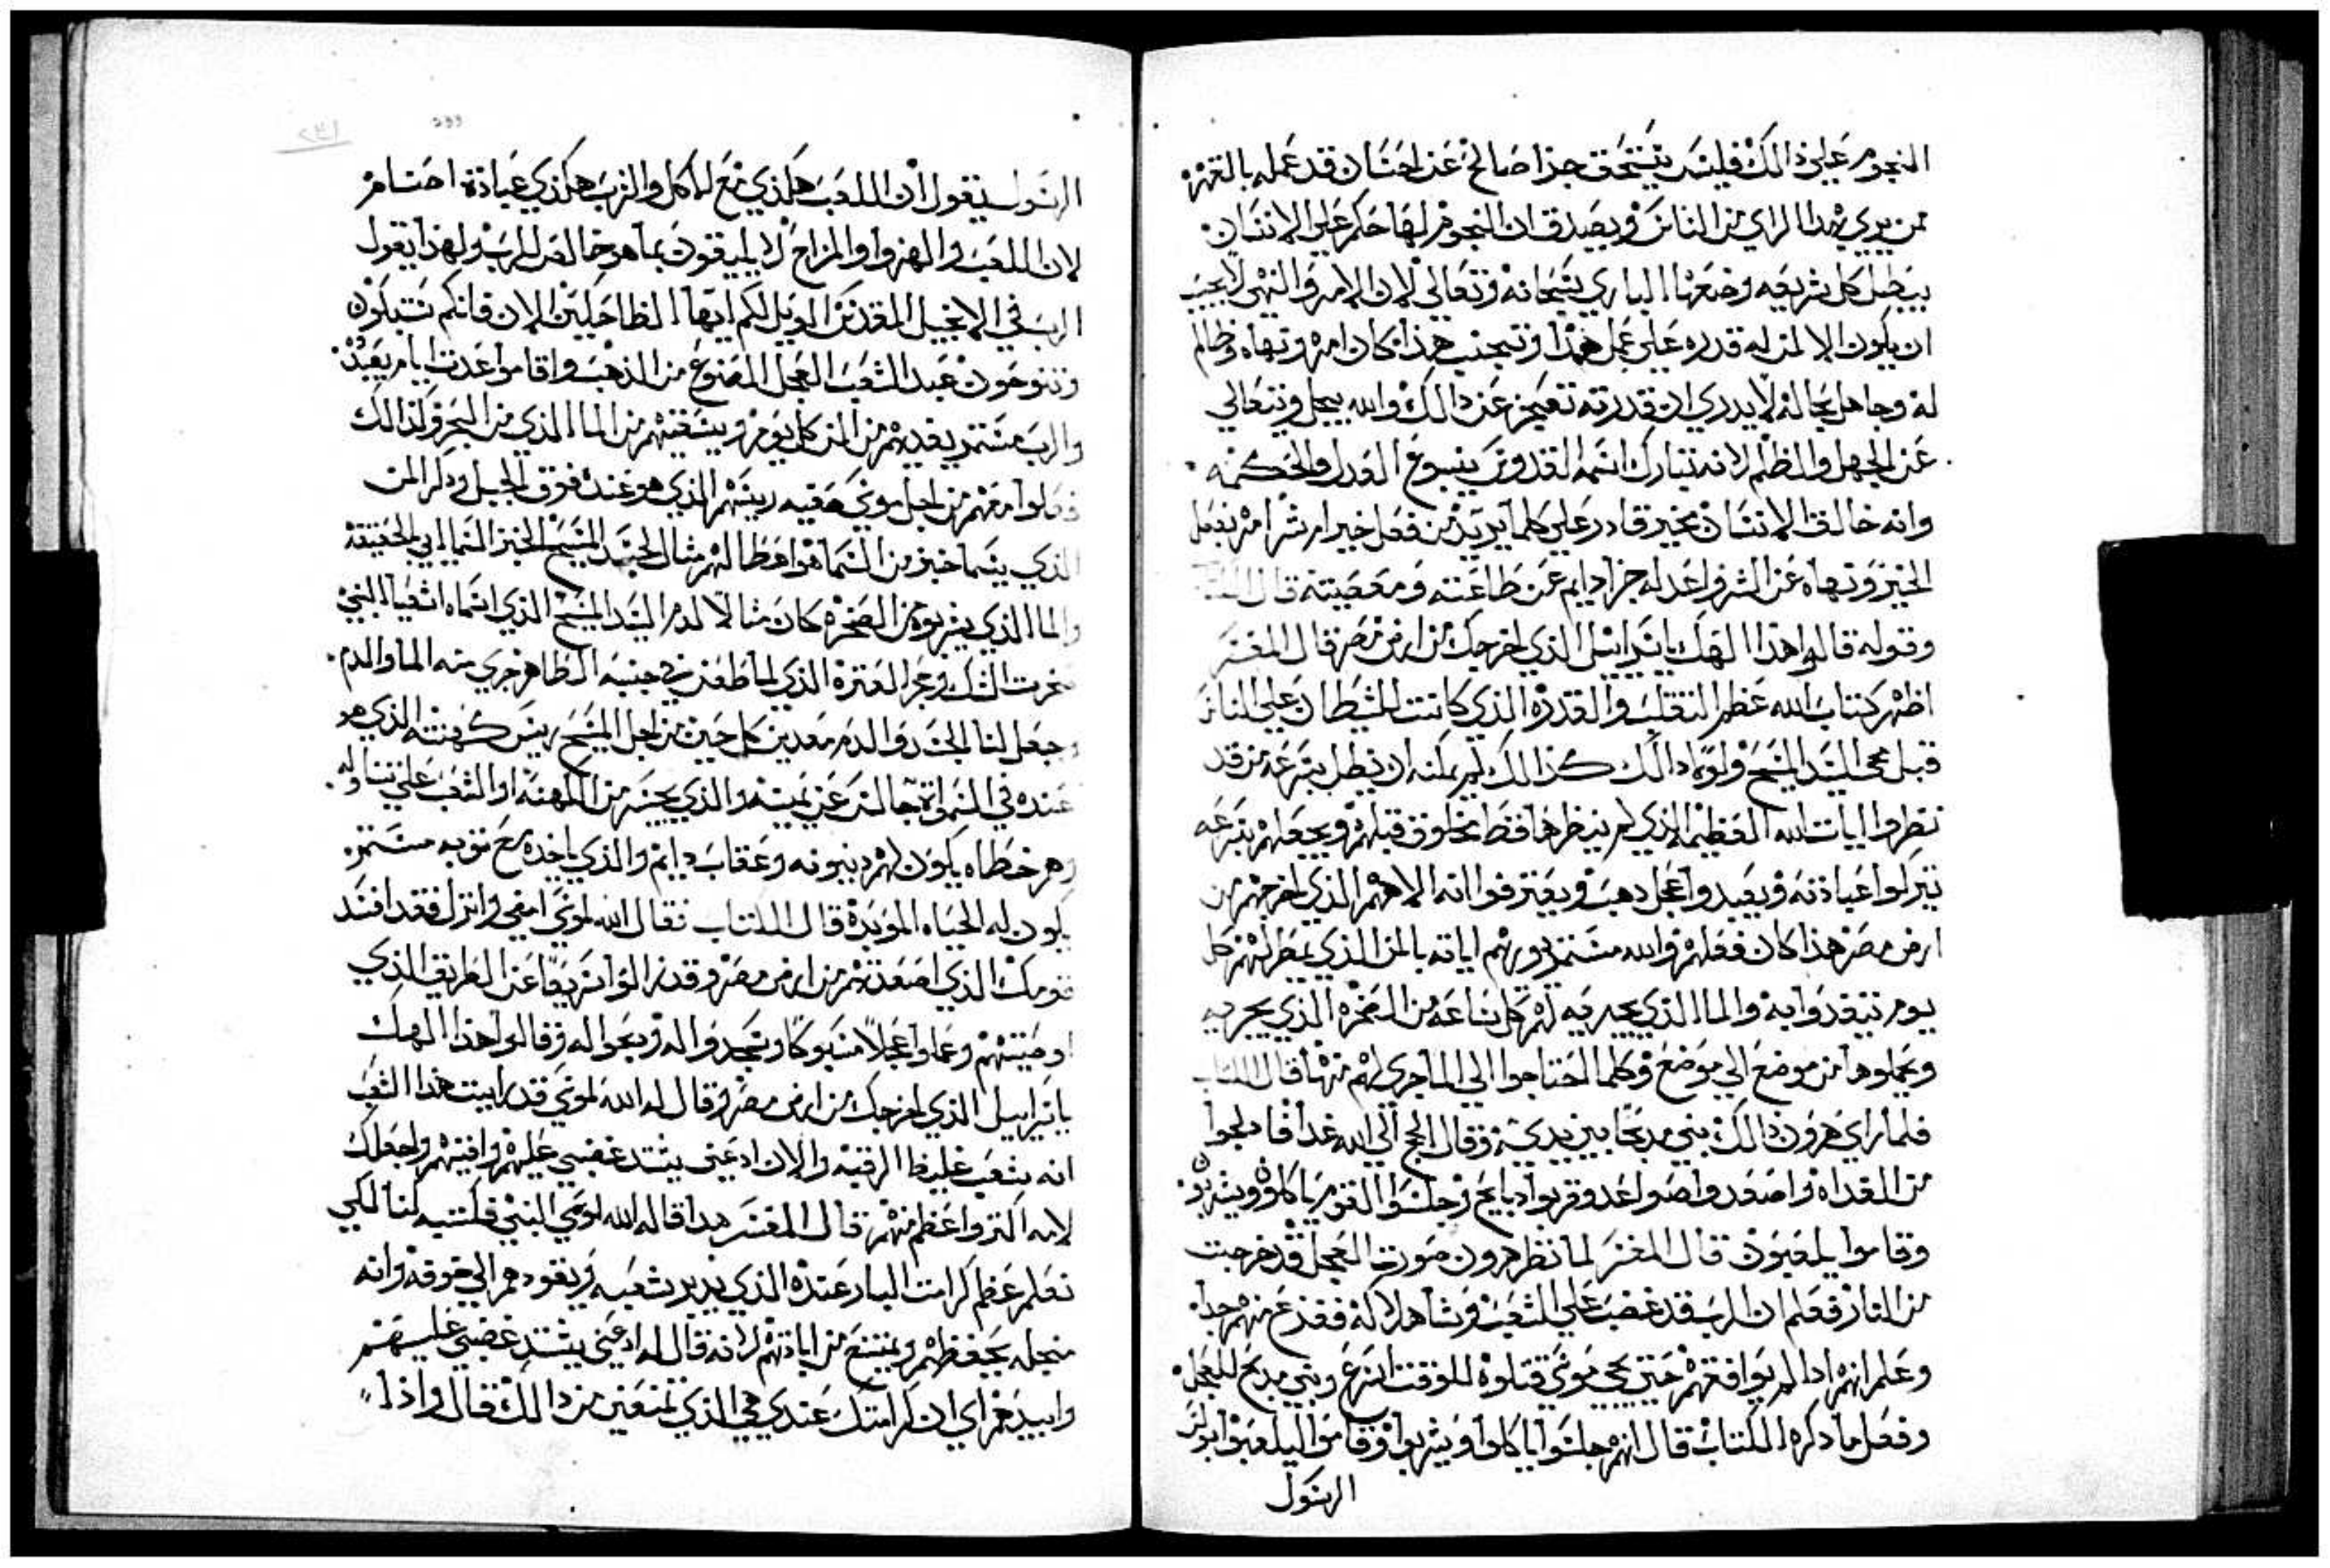 النجوم على ذالك فليس يستحق جزا صالح عن احسان قد عمله بالقهر
من يري هدا الراي من الناس ويصدق ان النجوم لها حكم على الانسان
يبطل كل شريعه وضعها الباري سبحانه وتعالي لان الامر والنهي لا يجب
ان يكون الا لمن له قدره علي عمل هذا وتجنب هذا كان امره ونهاه وظالم
له وجاهل بحاله لا يدري ان قدرته تعجز عن دالك والله يجل ويتعالي
عن الجهل والظلم لانه تبارك اسمه القدوس ينبوع العدل والحكمه
وانه خالق الانسان مخير قادر علي كلما يريد من فعل خير او شر امره بفعل
الخير ونهاه عن الشر واعد له جزا دايم عن طاعته ومعصيته قال
وقوله قالوا هذا الهك يا اسراييل الذي اخرجك من ارض مصر قال المفسر
اظهر كتاب الله عظم التقلب والقدره الذي كانت للشيطان علي الناس
قبل مجي السيد المسيح ولولا دالك كذالك لم يمكنه ان يضل بسرعه من قد
نظروا ايات الله العظيمه الذي لم ينظرها قط مخلوق قبلهم ويجعلهم بسرعه
يتركوا عبادته ويعبدوا عجل دهب ويعترفوا انه الاههم الذي اخرجهم من
ارض مصر هذا كان فعلهم والله مستمر يوريهم اياته بالمن الذي يمطر لهم كل
يوم يتقدوا به والما الذي يجريه لهم كل ساعه من الصخره الذي يجر بهم
ويحملوها من موضع الي موضع وكلما احتاجوا الي الما جري لهم منها قال الكتاب
فلما راي هرون ذالك بني مدبحا بين يديه وقال الحج الي الله غدا فادلجوا
من الغداه واصعدوا صواعد وقربوا دبايح وجلسوا القوم ياكلون ويشربون
وقاموا يلعبون قال المفسر لما نظر هرون صورة العجل قد خرجت
من النار فعلم ان الرب قد غضب علي الشعب وشا هلاكه ففزع منهم جدا
وعلم انهم ادا لم يوافقهم حتي يجي موسي قتلوه للوقت اسرع وبني مدبح للعجل
وفعل ما دكره الكتاب قال انهم جلسوا ياكلوا ويشربوا وقاموا ليلعبوا بولس
الرسول
الرسول يقول ان اللعب هكذي مع الاكل والشرب هكذي عبادة اصنام
لان اللعب والهزوا والمزاح لا يليقون بما هو خالص للرب ولهذا يقول
الرب في الانجيل المقدس الويل لكم ايها الضاحكين الان فانكم ستبكون
وتنوحون عبد الشعب العجل المصنوع من الذهب واقاموا عدت ايام يعبدوه
والرب مستمر يغديهم من المن كل يوم ويسقيهم من الما الذي من الحجر ولذالك
فعلوا معهم من اجل موسي صفيه رييسهم الذي هو عنده فوق الجبل ودكر المن
الذي يسما خبز من السما هو امطا لهم مثال لجسد المسيح الخبز السمايي الحقيقه
والما الذي يشربوه من الصخره كان مثالا لدم السيد المسيح الذي اسماه اشعيا النبي
صخرت الشك وحجر العتره الذي لما طعن في جنبه الطاهر جري منه الما والدم
وجعل لنا الجسد والدم معدين كل حين من اجل المسيح رييس كهنته الذي هو
عنده في السموات جالس عن يمينه والذي يجسر من الكهنه او الشعب علي تناوله
وهم خطاه يكون لهم دينونه وعقاب دايم والذي ياخده مع توبه مستمره
يكون له الحياه الموبده قال الكتاب فقال الله لموسي امضي وانزل فقد افسد
قومك الذي اصعدتهم من ارض مصر وقد زالوا سريعا عن الطريق الذي
اوصيتهم وعملوا عجلا مسبوكا وسجدوا له ودبحوا له وقالوا هذا الهك
يا اسراييل الذي اخرجك من ارض مصر وقال له الله لموسي قد رايت هدا الشعب
انه شعب غليظ الرقبه والان ادعني يشتد غضبي عليهم وافنيهم واجعلك
لامه اكثر واعظم منهم قال المفسر هدا قاله الله لموسي النبي فكتبه لنا لكي
نعلم عظم كرامت البار عنده الذي يدبر شعبه ويقودهم الي خوفه وانه
من اجله يحفظهم ويمتنع من ابادتهم لانه قال له ادعني يشتد غضبي عليهم
وابيدهم اي ان كرامتك عندي هي الذي تمنعني من دالك قال واذا